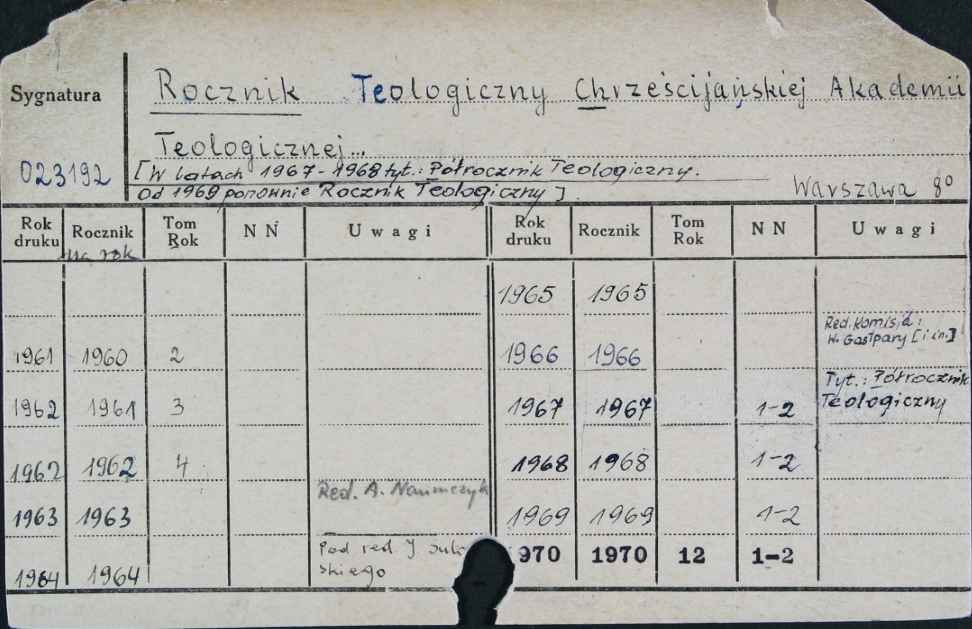 Rocznik Teologiczny Chrześcijańskiej Akademii
Sygnatura
Teologicznej...
023192
[W latach 1967-1968 tyt.: Półrocznik Teologiczny.
Od 1969 ponownie Rocznik Teologiczny].
Warszawa 8º
Rok druku Rocznik na rok Tom Rok NN Uwagi Rok druku Rocznik Tom Rok NN Uwagi
1965 1965
1961 1960 2 1966 1966 Red. Komisja: W. Gastpary [i in.]
1962 1961 3 1967 1967 1-2 Tyt.: Półrocznik Teologiczny
1962 1962 4 1968 1968 1-2
1963 1963 Red. A. Naumczyk 1969 1969 1-2
1964 1964 Pod red J skiego 1970 1970 12 1-2